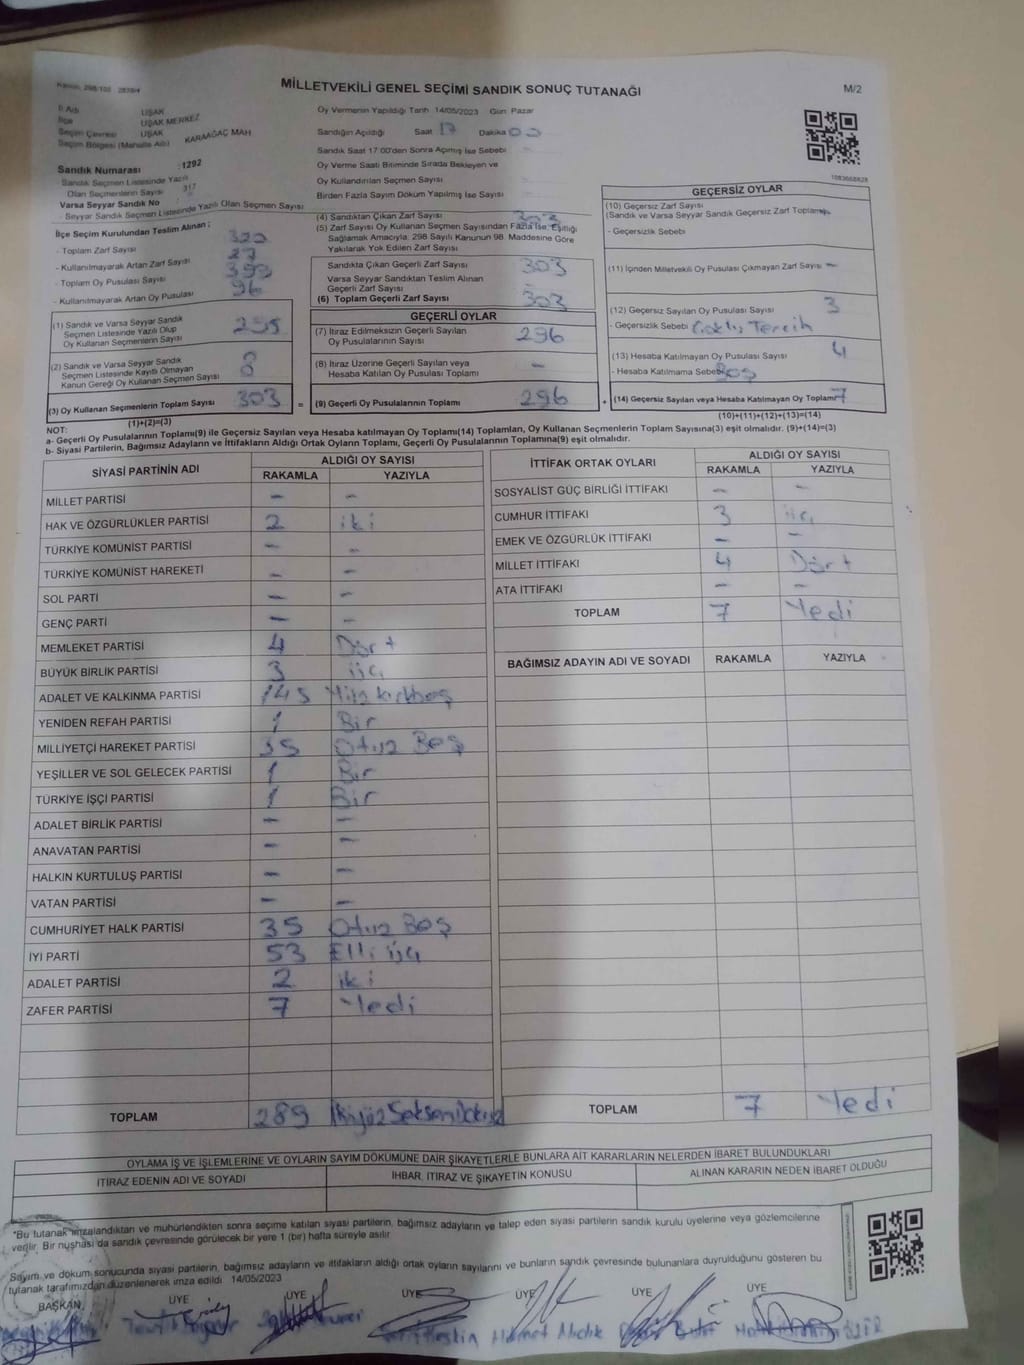 MİLLETVEKİLİ GENEL SEÇİMİ SANDIK SONUÇ TUTANAĞI
M/2
İl Adı UŞAK
İlçe UŞAK MERKEZ
Seçim Çevresi UŞAK
Seçim Bölgesi (Mahalle Adı) KARAAĞAÇ MAH
Sandık Numarası :1292
- Sandık Seçmen Listesinde Yazılı
Olan Seçmenlerin Sayısı 317
Varsa Seyyar Sandık No
- Seyyar Sandık Seçmen Listesinde Yazılı Olan Seçmen Sayısı
Oy Vermenin Yapıldığı Tarih 14/05/2023 Gün Pazar
Sandığın Açıldığı Saat 17 Dakika 00
Sandık Saat 17:00'den Sonra Açılmış İse Sebebi
Oy Verme Saati Bitiminde Sırada Bekleyen ve
Oy Kullandırılan Seçmen Sayısı
Birden Fazla Sayım Döküm Yapılmış İse Sayısı
İlçe Seçim Kurulundan Teslim Alınan ;
- Toplam Zarf Sayısı
- Kullanılmayarak Artan Zarf Sayısı 27
- Toplam Oy Pusulası Sayısı
- Kullanılmayarak Artan Oy Pusulası 96
(1) Sandık ve Varsa Seyyar Sandık
Seçmen Listesinde Yazılı Olup
Oy Kullanan Seçmenlerin Sayısı 295
(2) Sandık ve Varsa Seyyar Sandık
Seçmen Listesinde Kayıtlı Olmayan
Kanun Gereği Oy Kullanan Seçmen Sayısı 8
(3) Oy Kullanan Seçmenlerin Toplam Sayısı 303
(1)+(2)=(3)
(4) Sandıktan Çıkan Zarf Sayısı 303
(5) Zarf Sayısı Oy Kullanan Seçmen Sayısından Fazla İse, Eşitliği
Sağlamak Amacıyla, 298 Sayılı Kanunun 98. Maddesine Göre
Yakılarak Yok Edilen Zarf Sayısı
Sandıkta Çıkan Geçerli Zarf Sayısı 303
Varsa Seyyar Sandıktan Teslim Alınan
Geçerli Zarf Sayısı
(6) Toplam Geçerli Zarf Sayısı 303
GEÇERLİ OYLAR
(7) İtiraz Edilmeksizin Geçerli Sayılan
Oy Pusulalarının Sayısı 296
(8) İtiraz Üzerine Geçerli Sayılan veya
Hesaba Katılan Oy Pusulası Toplamı -
= (9) Geçerli Oy Pusulalarının Toplamı 296
1083668828
GEÇERSİZ OYLAR
(10) Geçersiz Zarf Sayısı
(Sandık ve Varsa Seyyar Sandık Geçersiz Zarf Toplamı)
- Geçersizlik Sebebi
(11) İçinden Milletvekili Oy Pusulası Çıkmayan Zarf Sayısı -
(12) Geçersiz Sayılan Oy Pusulası Sayısı 3
- Geçersizlik Sebebi Çoklu Tercih
(13) Hesaba Katılmayan Oy Pusulası Sayısı 4
- Hesaba Katılmama Sebebi Boş
+ (14) Geçersiz Sayılan veya Hesaba Katılmayan Oy Toplamı 7
(10)+(11)+(12)+(13)=(14)
NOT:
a- Geçerli Oy Pusulalarının Toplamı(9) ile Geçersiz Sayılan veya Hesaba katılmayan Oy Toplamı(14) Toplamları, Oy Kullanan Seçmenlerin Toplam Sayısına(3) eşit olmalıdır. (9)+(14)=(3)
b- Siyasi Partilerin, Bağımsız Adayların ve İttifakların Aldığı Ortak Oyların Toplamı, Geçerli Oy Pusulalarının Toplamına(9) eşit olmalıdır.
SİYASİ PARTİNİN ADI ALDIĞI OY SAYISI
RAKAMLA YAZIYLA
MİLLET PARTİSİ - -
HAK VE ÖZGÜRLÜKLER PARTİSİ 2 iki
TÜRKİYE KOMÜNİST PARTİSİ - -
TÜRKİYE KOMÜNİST HAREKETİ - -
SOL PARTİ - -
GENÇ PARTİ - -
MEMLEKET PARTİSİ 4 Dört
BÜYÜK BİRLİK PARTİSİ 3 üç
ADALET VE KALKINMA PARTİSİ 145
YENİDEN REFAH PARTİSİ 1 Bir
MİLLİYETÇİ HAREKET PARTİSİ 35 Otuz Beş
YEŞİLLER VE SOL GELECEK PARTİSİ 1 Bir
TÜRKİYE İŞÇİ PARTİSİ 1 Bir
ADALET BİRLİK PARTİSİ - -
ANAVATAN PARTİSİ - -
HALKIN KURTULUŞ PARTİSİ - -
VATAN PARTİSİ - -
CUMHURİYET HALK PARTİSİ 35 Otuz Beş
İYİ PARTİ 53 Elli üç
ADALET PARTİSİ 2 iki
ZAFER PARTİSİ 7 Yedi
TOPLAM 289 İkiyüz Seksen Dokuz
İTTİFAK ORTAK OYLARI ALDIĞI OY SAYISI
RAKAMLA YAZIYLA
SOSYALİST GÜÇ BİRLİĞİ İTTİFAKI - -
CUMHUR İTTİFAKI 3 üç
EMEK VE ÖZGÜRLÜK İTTİFAKI - -
MİLLET İTTİFAKI 4 Dört
ATA İTTİFAKI - -
TOPLAM 7 Yedi
BAĞIMSIZ ADAYIN ADI VE SOYADI RAKAMLA YAZIYLA
TOPLAM 7 Yedi
OYLAMA İŞ VE İŞLEMLERİNE VE OYLARIN SAYIM DÖKÜMÜNE DAİR ŞİKAYETLERLE BUNLARA AİT KARARLARIN NELERDEN İBARET BULUNDUKLARI
İTİRAZ EDENİN ADI VE SOYADI İHBAR, İTİRAZ VE ŞİKAYETİN KONUSU ALINAN KARARIN NEDEN İBARET OLDUĞU
*Bu tutanak imzalandıktan ve mühürlendikten sonra seçime katılan siyasi partilerin, bağımsız adayların ve talep eden siyasi partilerin sandık kurulu üyelerine veya gözlemcilerine
verilir. Bir nüshası da sandık çevresinde görülecek bir yere 1 (bir) hafta süreyle asılır
Sayım ve döküm sonucunda siyasi partilerin, bağımsız adayların ve ittifakların aldığı ortak oyların sayılarını ve bunların sandık çevresinde bulunanlara duyrulduğunu gösteren bu
tutanak tarafımızdan düzenlenerek imza edildi. 14/05/2023
BAŞKAN ÜYE ÜYE ÜYE ÜYE ÜYE ÜYE